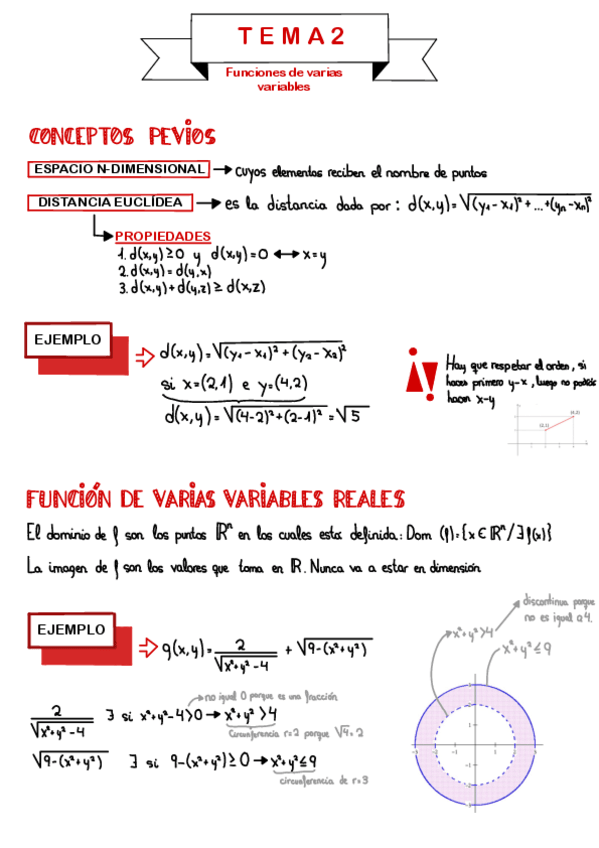 TEMA 2
Funciones de varias
variables
CONCEPTOS PEVIOS
ESPACIO N-DIMENSIONAL → cuyos elementos reciben el nombre de puntos
DISTANCIA EUCLÍDEA → es la distancia dada por: d(x,y)=√(y₁-x₁)²+...+(yₙ-xₙ)²
PROPIEDADES
1. d(x,y)≥0 y d(x,y)=0 ↔ x=y
2. d(x,y)=d(y,x)
3. d(x,y)+d(y,z)≥d(x,z)
EJEMPLO
d(x,y)=√(y₁-x₁)²+(y₂-x₂)²
si x=(2,1) e y=(4,2)
d(x,y)=√(4-2)²+(2-1)²=√5
Hay que respetar el orden, si
haces primero y-x, luego no podéis
hacer x-y
(2,1)
(4,2)
FUNCIÓN DE VARIAS VARIABLES REALES
El dominio de f son los puntos ℝⁿ en los cuales esta definida: Dom (f)={x∈ℝⁿ/∃f(x)}
La imagen de f son los valores que toma en ℝ. Nunca va a estar en dimensión
EJEMPLO
g(x,y)=2/√x²+y²-4 + √9-(x²+y²)
discontinua porque
no es igual a 4.
x²+y²>4
x²+y²≤9
no igual 0 porque es una fracción
2/√x²+y²-4 ∃ si x²+y²-4>0 → x²+y²>4
Circunferencia r=2 porque √4=2
√9-(x²+y²) ∃ si 9-(x²+y²)≥0 → x²+y²≤9
circunferencia de r=3